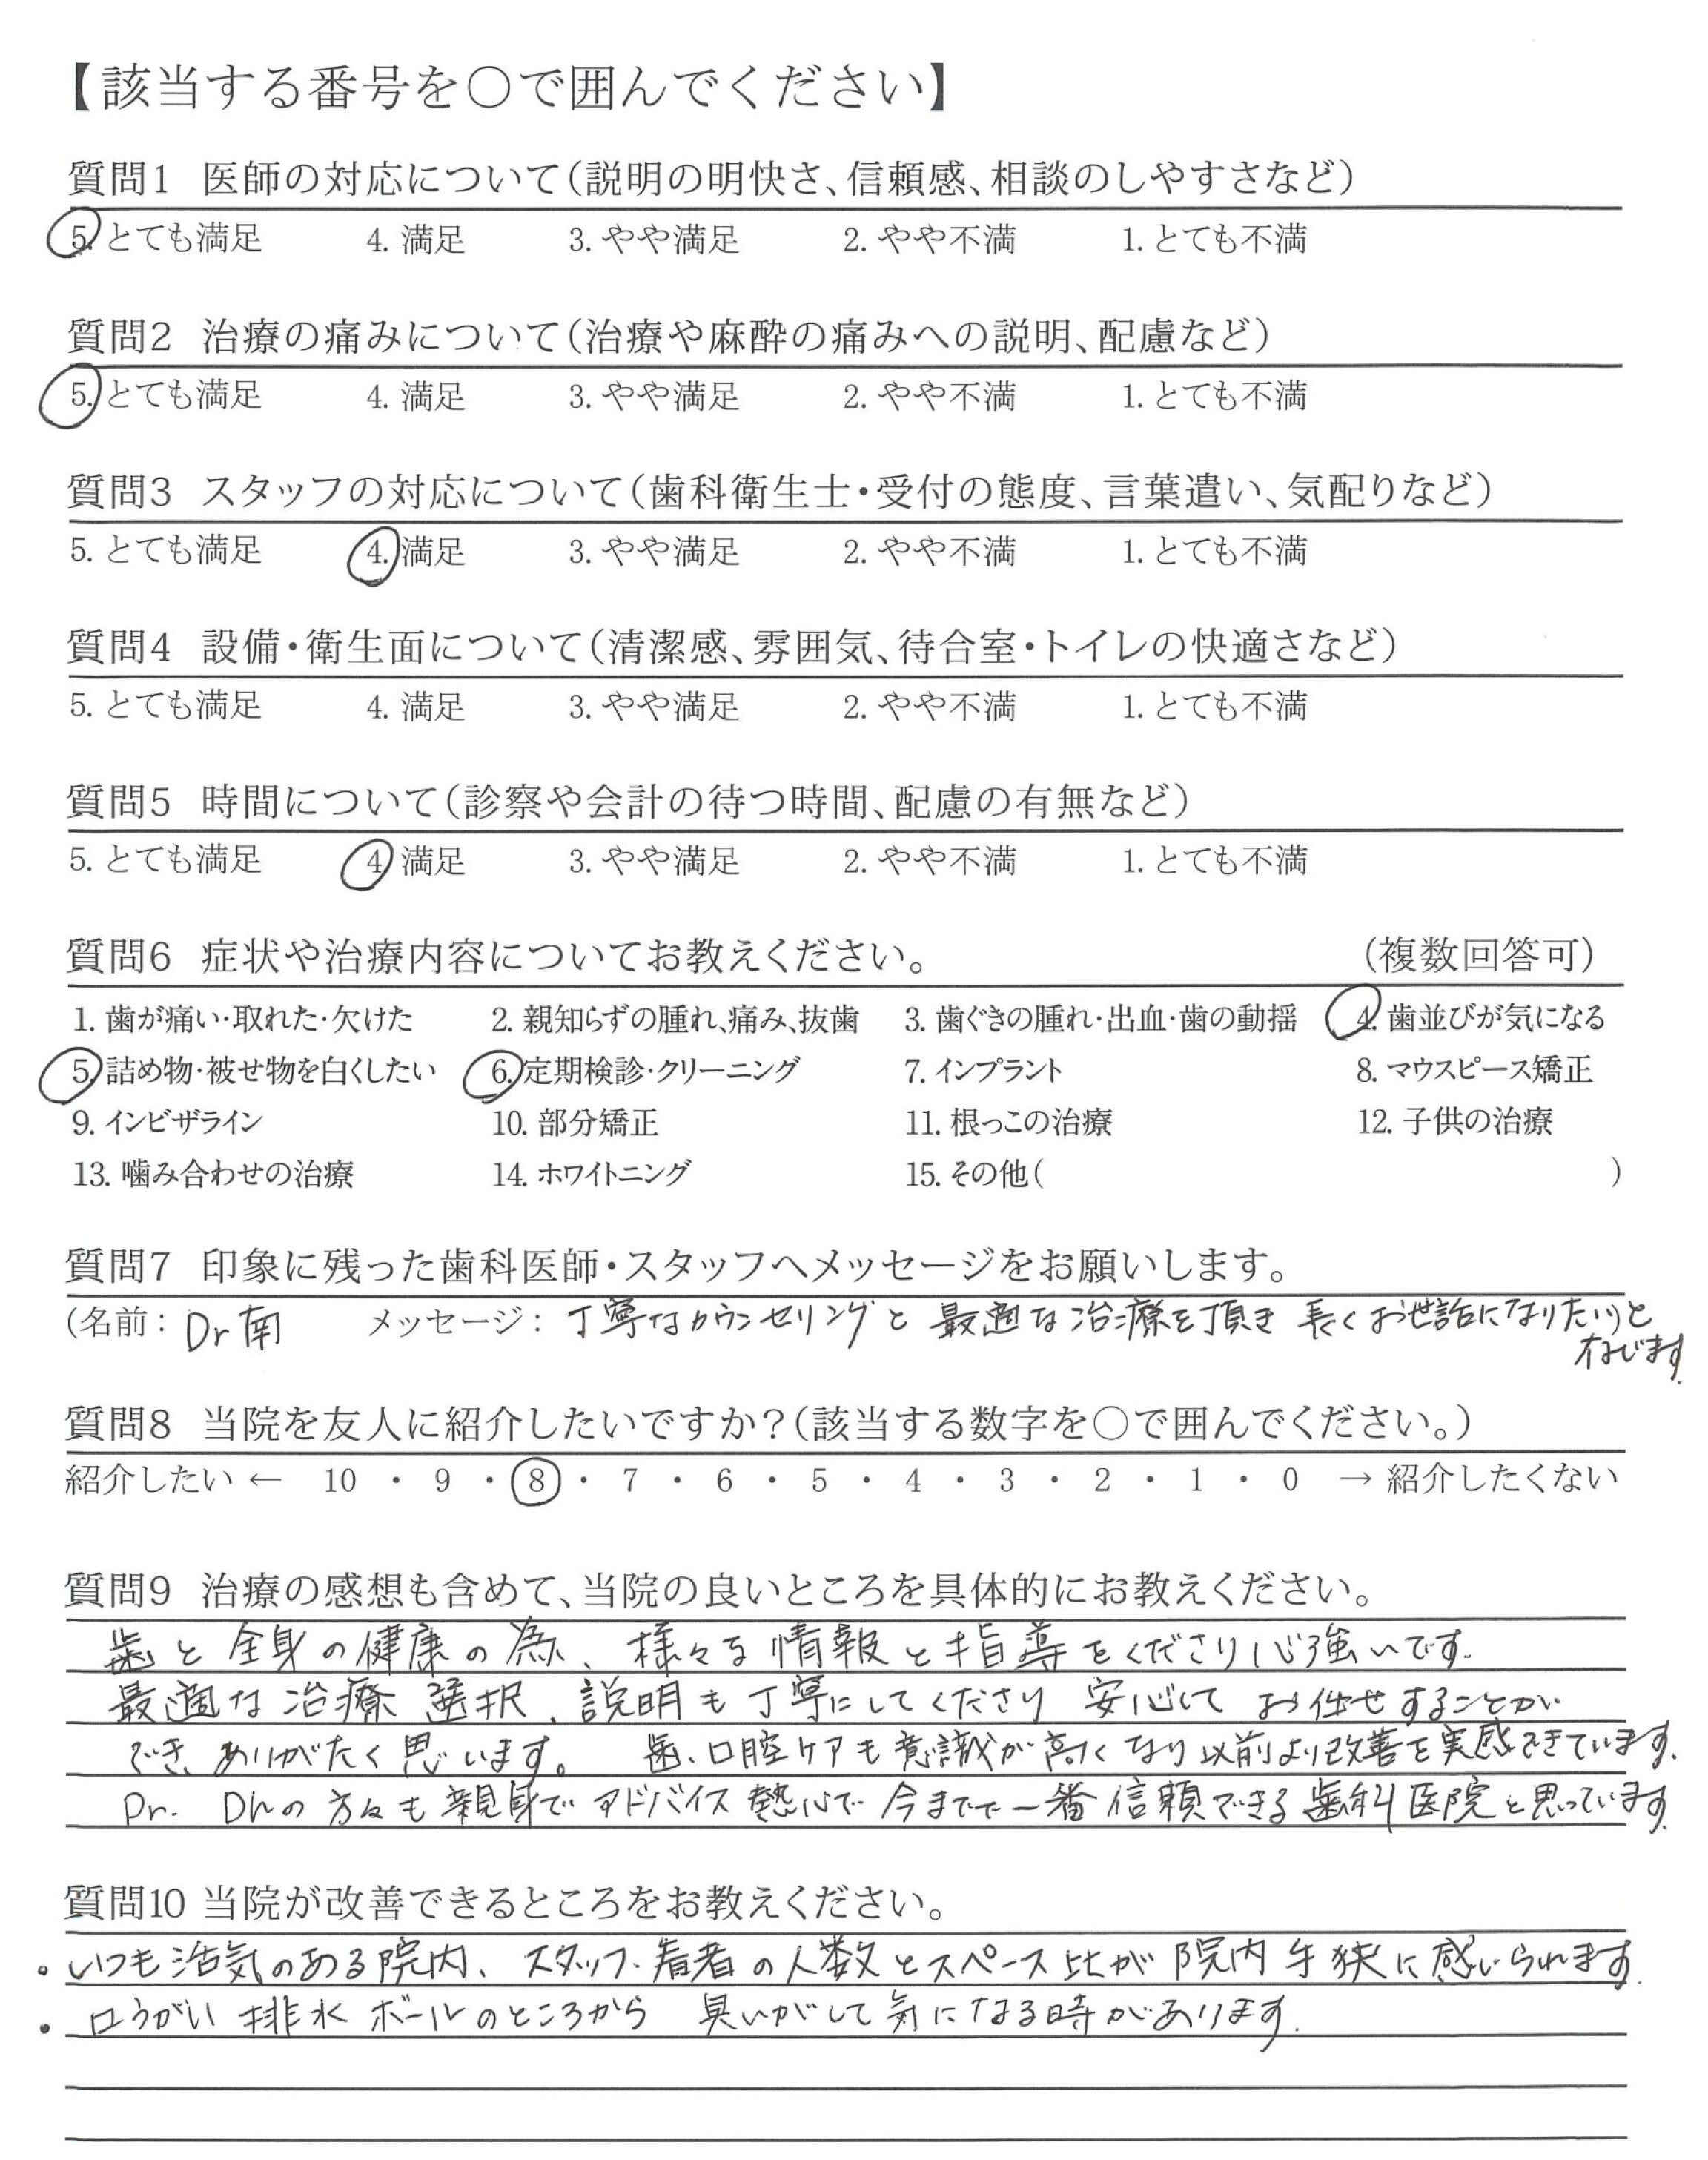 【該当する番号を○で囲んでください】
質問1 医師の対応について(説明の明快さ、信頼感、相談のしやすさなど)
5. とても満足 4. 満足 3. やや満足 2. やや不満 1. とても不満
質問2 治療の痛みについて(治療や麻酔の痛みへの説明、配慮など)
5. とても満足 4. 満足 3. やや満足 2. やや不満 1. とても不満
質問3 スタッフの対応について(歯科衛生士・受付の態度、言葉遣い、気配りなど)
5. とても満足 4. 満足 3. やや満足 2. やや不満 1. とても不満
質問4 設備・衛生面について(清潔感、雰囲気、待合室・トイレの快適さなど)
5. とても満足 4. 満足 3. やや満足 2. やや不満 1. とても不満
質問5 時間について(診察や会計の待つ時間、配慮の有無など)
5. とても満足 4 満足 3. やや満足 2. やや不満 1. とても不満
質問6 症状や治療内容についてお教えください。 (複数回答可)
1. 歯が痛い・取れた・欠けた 2. 親知らずの腫れ、痛み、抜歯 3. 歯ぐきの腫れ・出血・歯の動揺 4. 歯並びが気になる
5. 詰め物・被せ物を白くしたい 6. 定期検診・クリーニング 7. インプラント 8. マウスピース矯正
9. インビザライン 10. 部分矯正 11. 根っこの治療 12. 子供の治療
13. 噛み合わせの治療 14. ホワイトニング 15. その他( )
質問7 印象に残った歯科医師・スタッフへメッセージをお願いします。
(名前: Dr南 メッセージ: 丁寧なカウンセリングと最適な治療を頂き 長くお世話になりたいと
存じます.
質問8 当院を友人に紹介したいですか?(該当する数字を○で囲んでください。)
紹介したい ← 10 ・ 9 ・ 8 ・ 7 ・ 6 ・ 5 ・ 4 ・ 3 ・ 2 ・ 1 ・ 0 → 紹介したくない
質問9 治療の感想も含めて、当院の良いところを具体的にお教えください。
歯と全身の健康の為、様々な情報と指導をくださり心強いです.
最適な治療選択、説明も丁寧にしてくださり 安心して お任せすることが
でき、ありがたく思います。 歯、口腔ケアも意識が高くなり以前より改善を実感できています.
Dr. DHの方々も親身でアドバイス熱心で 今までで一番信頼できる歯科医院と思っています.
質問10 当院が改善できるところをお教えください。
・いつも活気のある院内、スタッフ・患者の人数とスペース比が院内手狭に感じられます.
・口うがい排水ボールのところから 臭いがして気になる時があります.